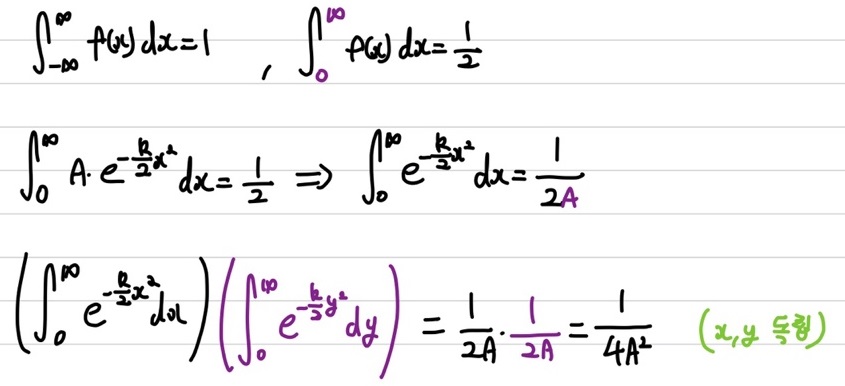 ∫_{-∞}^{∞} f(x) dx = 1 , ∫_{0}^{∞} f(x) dx = 1/2
∫_{0}^{∞} A·e^{-k/2 x²} dx = 1/2 ⇒ ∫_{0}^{∞} e^{-k/2 x²} dx = 1/2A
(∫_{0}^{∞} e^{-k/2 x²} dx) (∫_{0}^{∞} e^{-k/2 y²} dy) = 1/2A · 1/2A = 1/4A² (x, y 독립)